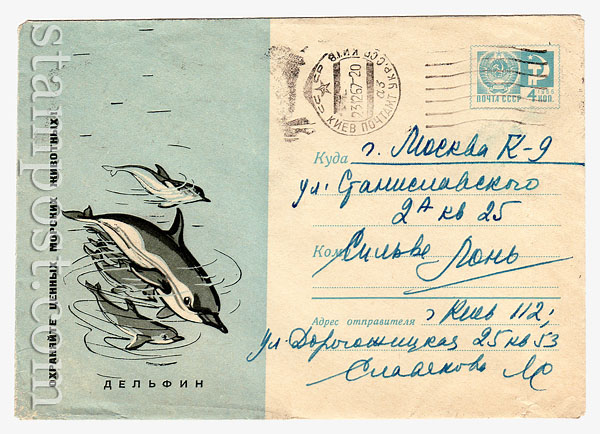 stampost.com
ОХРАНЯЙТЕ ЦЕННЫХ МОРСКИХ ЖИВОТНЫХ
ДЕЛЬФИН
УКР.ССР КИЇВ
23.12.67-20
КИЕВ ПОЧТАМТ
ПОЧТА СССР
1966
4 КОП
Куда г. Москва К-9
ул. Станиславского
2А кв 25
Кому Сильве Лонь
Адрес отправителя г Киев 112;
ул Дорогожицкая 25 кв 53